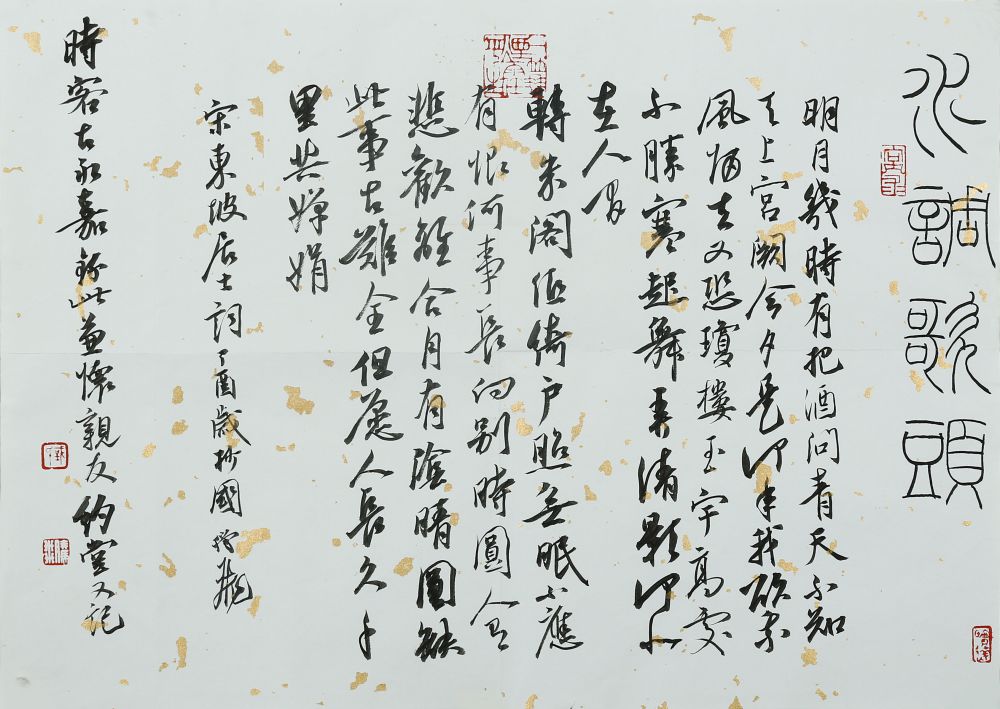 水調歌頭
明月幾時有把酒問青天不知
天上宮闕今夕是何年我欲乘
風歸去又恐瓊樓玉宇高處
不勝寒起舞弄清影何似
在人間
轉朱閣低綺戶照無眠不應
有恨何事長向別時圓人有
悲歡離合月有陰晴圓缺
此事古難全但願人長久千
里共嬋娟
宋東坡居士詞丁酉歲抄國
時客古永嘉錄此兼懷親友約堂又記